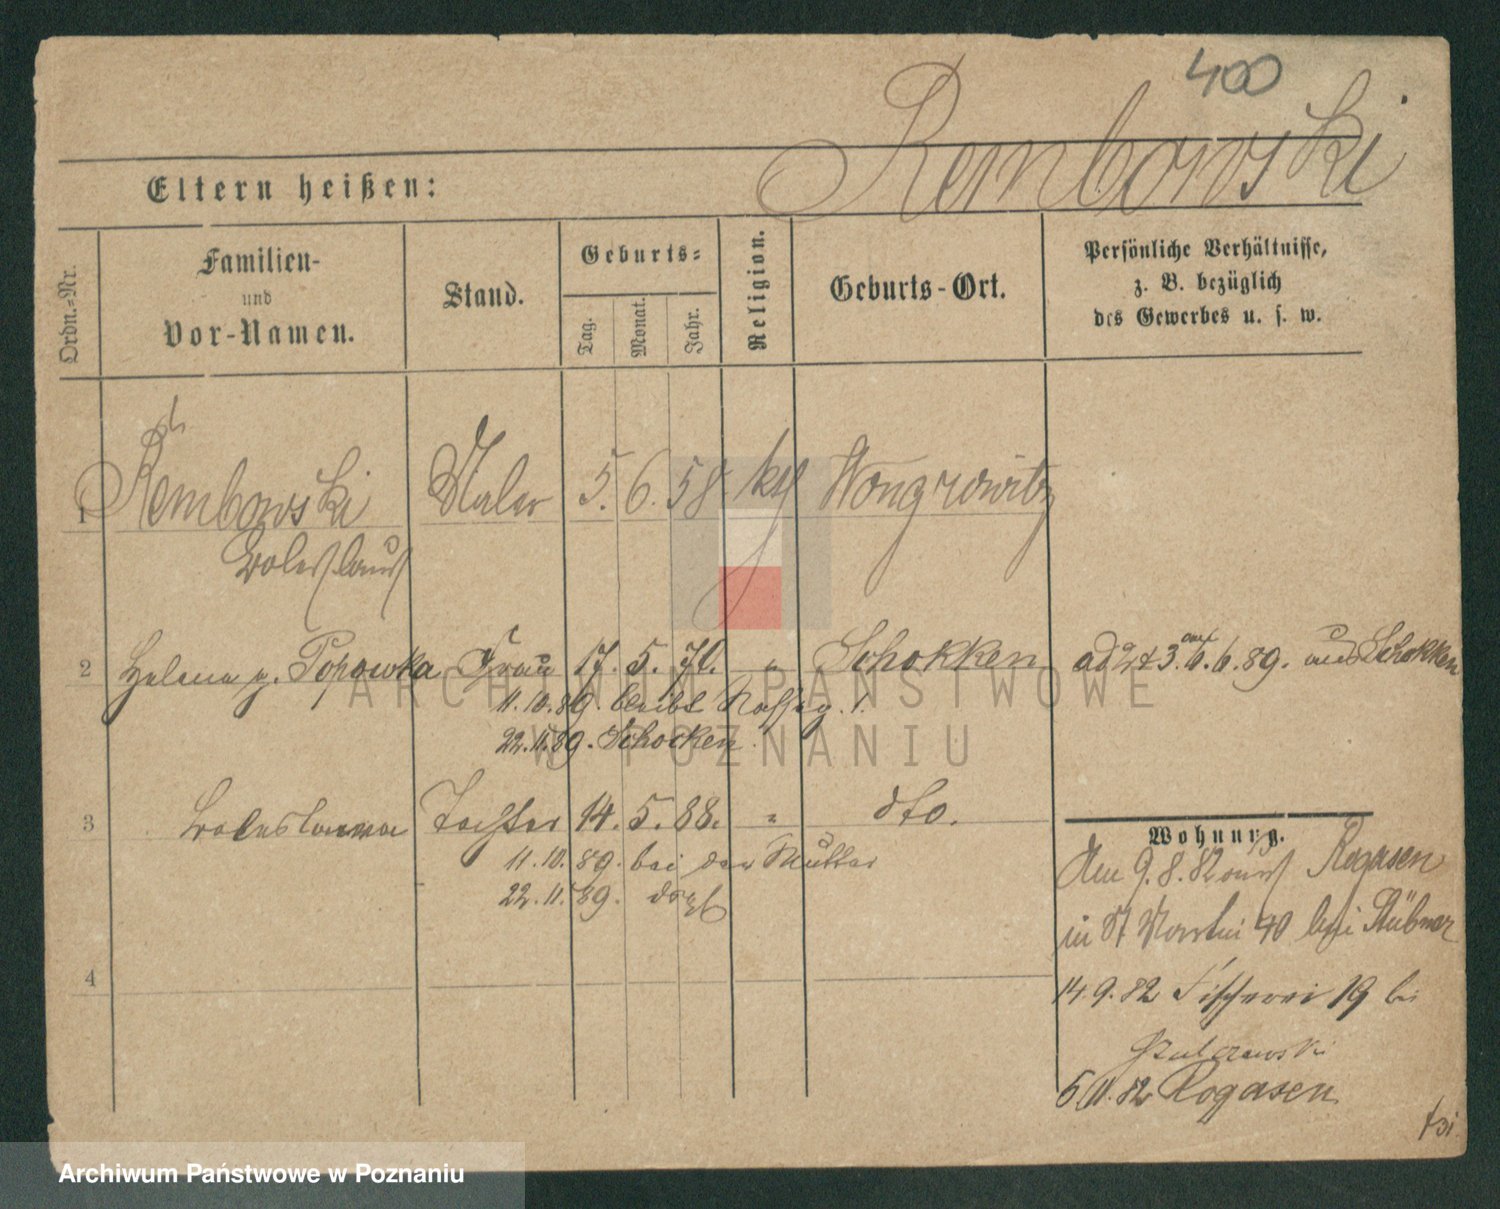 400
Rembowski
Eltern heißen:
Ordn.-Nr.
Familien-
und
Vor-Namen.
Stand.
Geburts-
Tag.
Monat.
Jahr.
Religion.
Geburts-Ort.
Persönliche Verhältnisse,
z. B. bezüglich
des Gewerbes u. s. w.
1 Rembowski Maler 5. 6. 58. kth Wongrowitz
Boleslaus
2 Helena g. Popowka Frau 17. 5. 71. " Schokken ad 2 & 3. am 6. 6. 89. aus Schokken
11.10.89. bleibt
22.11.89. Schocken
3 Boleslawa Tochter 14. 5. 88. " dto.
11.10.89. bei der Mutter
22.11.89. dsgl
4
Wohnung.
Am 9.8.82 aus Rogasen
in St Martin 40 bei Stübner
14.9.82 Fischerei 19 bei
Szulczewski
6.11.82 Rogasen
ARCHIWUM PAŃSTWOWE
W POZNANIU
Archiwum Państwowe w Poznaniu